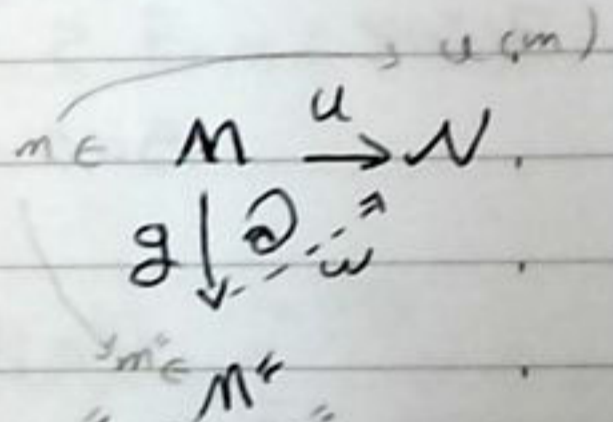 u(m)
u
m ∈ M → N
g ↓ w
m" ∈ M"